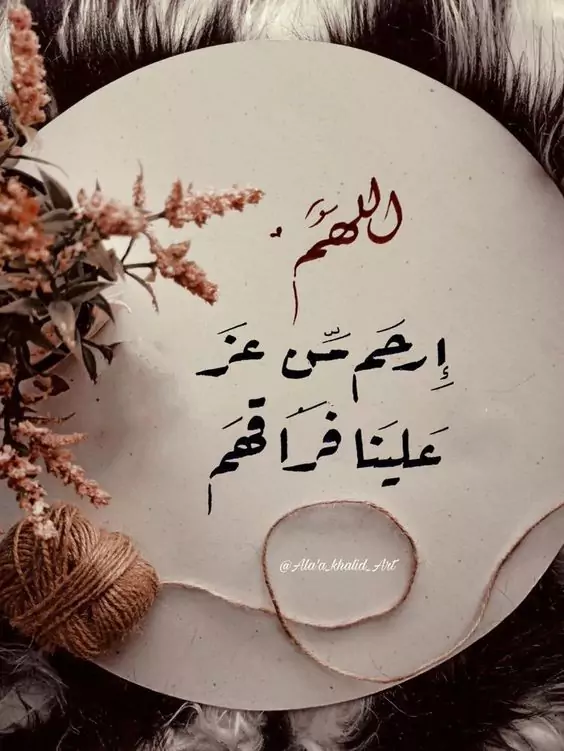 اللهم
إرحَم مّن عزَ
عَلينَا فرَاقهَم
@Ala'a_khalid_Art